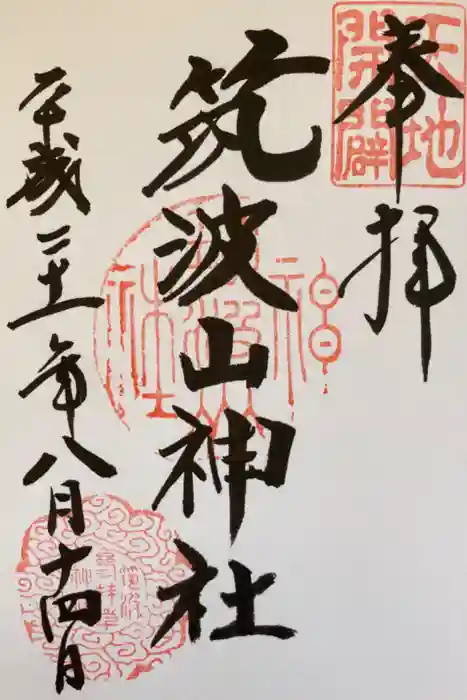 奉拝
天地
開闢
筑波山神社
平成二十一年八月十四日